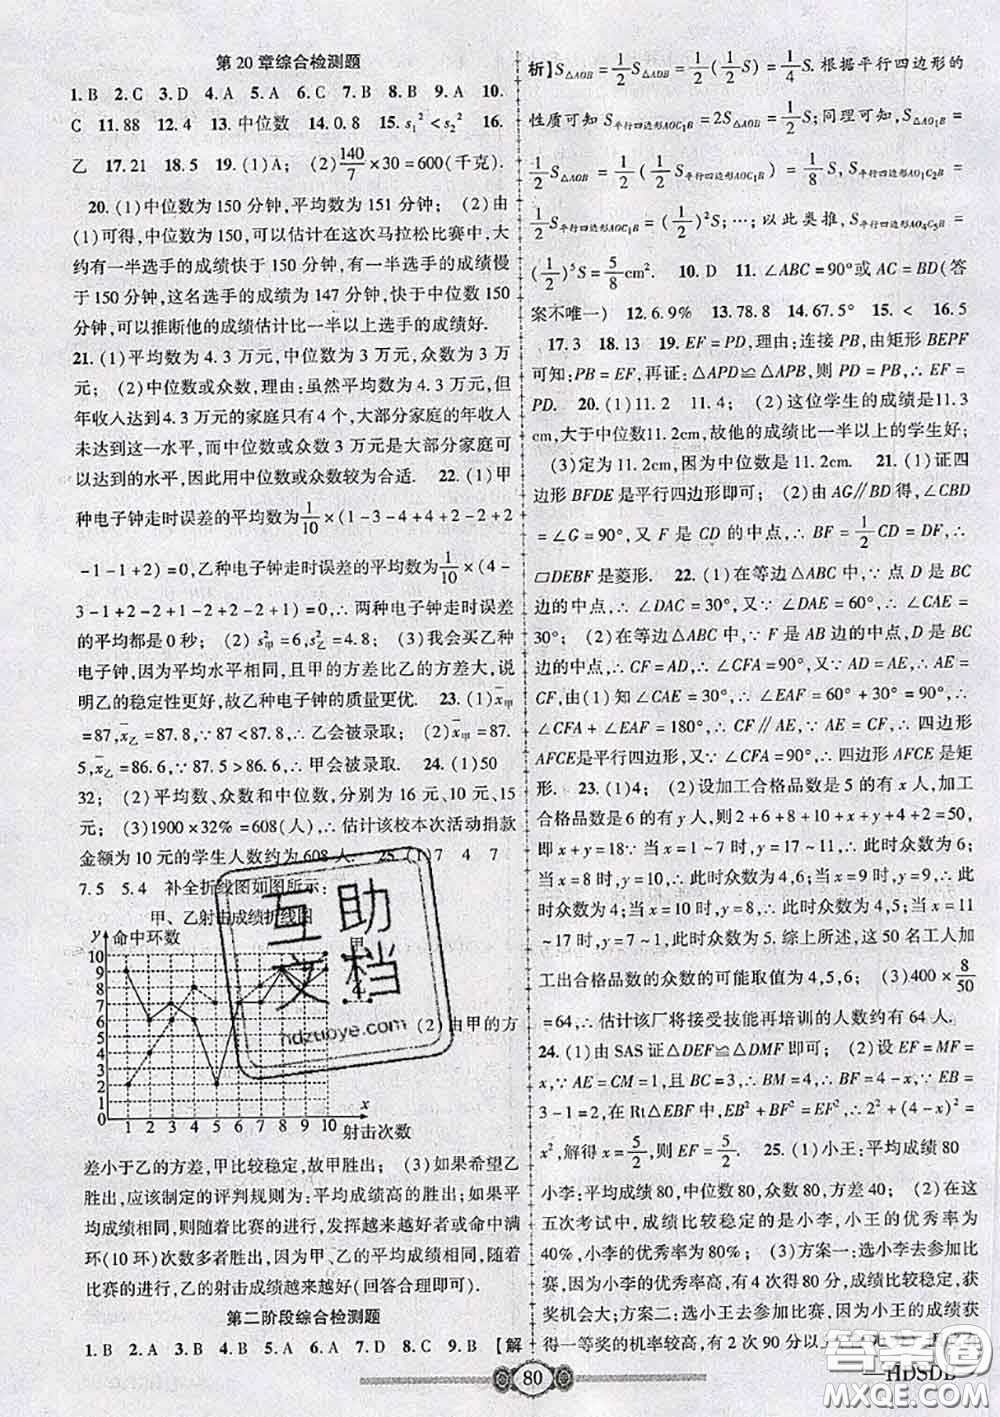 第 20 章综合检测题
1. B 2. C 3. D 4. A 5. A 6. C 7. B 8. B 9. A 10.
C 11. 88 12. 4 13. 中位数 14. 0. 8 15. s₁² < s₂² 16.
乙 17. 21 18. 5 19. (1)A; (2)140/7×30=600(千克).
20. (1)中位数为 150 分钟,平均数为 151 分钟; (2)由
(1)可得,中位数为150,可以估计在这次马拉松比赛中,大
约有一半选手的成绩快于 150 分钟,有一半选手的成绩慢
于 150 分钟,这名选手的成绩为 147 分钟,快于中位数 150
分钟,可以推断他的成绩估计比一半以上选手的成绩好.
21. (1)平均数为 4. 3 万元,中位数为 3 万元,众数为 3 万
元; (2)中位数或众数,理由:虽然平均数为4. 3 万元,但
年收入达到4. 3 万元的家庭只有 4 个,大部分家庭的年收入
未达到这一水平,而中位数或众数 3 万元是大部分家庭可
以达到的水平,因此用中位数或众数较为合适. 22. (1)甲
种电子钟走时误差的平均数为1/10×(1-3-4+4+2-2+2
-1-1+2)=0,乙种电子钟走时误差的平均数为1/10×(4-
3-1+2-2+1-2+2-2+1)=0,∴两种电子钟走时误差
的平均都是 0 秒; (2) s²甲=6,s²乙=4.8; (3)我会买乙种
电子钟,因为平均水平相同,且甲的方差比乙的方差大,说
明乙的稳定性更好,故乙种电子钟的质量更优. 23. (1)x̄甲
=87,x̄乙=87. 8,∵87<87. 8,∴乙会被录取; (2)x̄甲=87.
5,x̄乙=86. 6,∵87. 5>86. 6,∴甲会被录取. 24. (1)50
32; (2)平均数、众数和中位数,分别为 16 元、10 元、15
元; (3)1900×32%=608(人),∴估计该校本次活动捐款
金额为 10 元的学生人数约为 608 人. 25. (1)7 4 7
7. 5 5. 4 补全折线图如图所示:
甲、乙射击成绩折线图
y 命中环数
甲
乙
10
9
8
7
6
5
4
3
2
1
0
1 2 3 4 5 6 7 8 9 10 x
射击次数
(2)由甲的方
差小于乙的方差,甲比较稳定,故甲胜出; (3)如果希望乙
胜出,应该制定的评判规则为:平均成绩高的胜出;如果平
均成绩相同,则随着比赛的进行,发挥越来越好者或命中满
环(10 环)次数多者胜出,因为甲、乙的平均成绩相同,随着
比赛的进行,乙的射击成绩越来越好(回答合理即可).
第二阶段综合检测题
1. B 2. A 3. B 4. B 5. A 6. A 7. D 8. C 9. B [解
析]S△AOB=1/2S△ADB=1/2(1/2S)=1/4S. 根据平行四边形的
性质可知 S平行四边形AOC₁B=2S△AOB=1/2S;同理可知,S△AO₁B=
1/2S△AOB=1/2S(1/2S平行四边形AOC₁B)=1/8S,S平行四边形AO₁C₂B=
1/2S平行四边形AOC₁B=(1/2)²S;…;以此类推,S平行四边形AO₄C₅B=
(1/2)⁵S=5/8cm². 10. D 11. ∠ABC=90°或 AC=BD(答
案不唯一) 12. 6. 9% 13. 78. 8 14. 67. 5° 15. < 16. 5
17. 3 18. 13 19. EF=PD,理由:连接 PB,由矩形 BEPF
可知:PB=EF,再证:△APD≌△APB,则 PD=PB,∴EF=
PD. 20. (1)11. 2 11. 4; (2)这位学生的成绩是11. 3
cm,大于中位数11. 2cm,故他的成绩比一半以上的学生好;
(3)定为 11. 2cm,因为中位数是 11. 2cm. 21. (1)证四
边形 BFDE 是平行四边形即可; (2)由 AG∥BD 得,∠CBD
=∠G=90°,又 F 是 CD 的中点,∴BF=1/2CD=DF,∴
▱DEBF 是菱形. 22. (1)在等边△ABC 中,∵点 D 是 BC
边的中点,∴∠DAC=30°,又∵∠DAE=60°,∴∠CAE=
30°; (2)在等边△ABC 中,∵F 是 AB 边的中点,D 是 BC
边的中点,∴CF=AD,∠CFA=90°,又∵AD=AE,∴AE=
CF,由(1)知∠CAE=30°,∴∠EAF=60°+30°=90°,∴
∠CFA+∠EAF=180°,∴CF∥AE,∵CF=AE,∴四边形
AFCE是平行四边形,又∵∠CFA=90°,∴四边形 AFCE 是矩
形. 23. (1)4; (2)设加工合格品数是 5 的有 x 人,加工
合格品数是 6 的有 y 人,则 2+6+8+10+x+y+4+2=50,
即:x+y=18∵当 x=1~7 时,此时众数为 6;当 x=8,y=
10 时,此时众数为 4,6;当 x=9,y=9 时,此时众数为 4;当
x=10,y=8,∴此时众数为 4,5;当 x=11
~17 时,y=7~1,此时众数为 5. 综上所述,这 50 名工人加
工出合格品数的众数的可能取值为 4,5,6; (3)400×8/50
=64,∴估计该厂将接受技能再培训的人数约有 64 人.
24. (1)由 SAS 证△DEF≌△DMF 即可; (2)设 EF=MF=
x,∵AE=CM=1,且 BC=3,∴BM=4,∴BF=4-x,∵EB=
3-1=2 在 Rt△EBF 中,EB²+BF²=EF²,∴2²+(4-x)²=
x²,解得 x=5/2,则 EF=5/2. 25. (1)小王:平均成绩 80
小李:平均成绩 80,中位数 80,众数 80,方差 40; (2)在这
五次考试中,成绩比较稳定的是小李,小王的优秀率为
40%,小李的优秀率为 80%; (3)方案一:选小李参加比
赛,因为小李的优秀率高,有 4 次得 80 分,成绩比较稳定,获
奖机会大;方案二:选小王参加比赛,因为小王的成绩获
得一等奖的机率较高,有 2 次 90 分以上
80
—HDSDB
互助文档
hdzuoye.com
答案圈
MXQE.COM